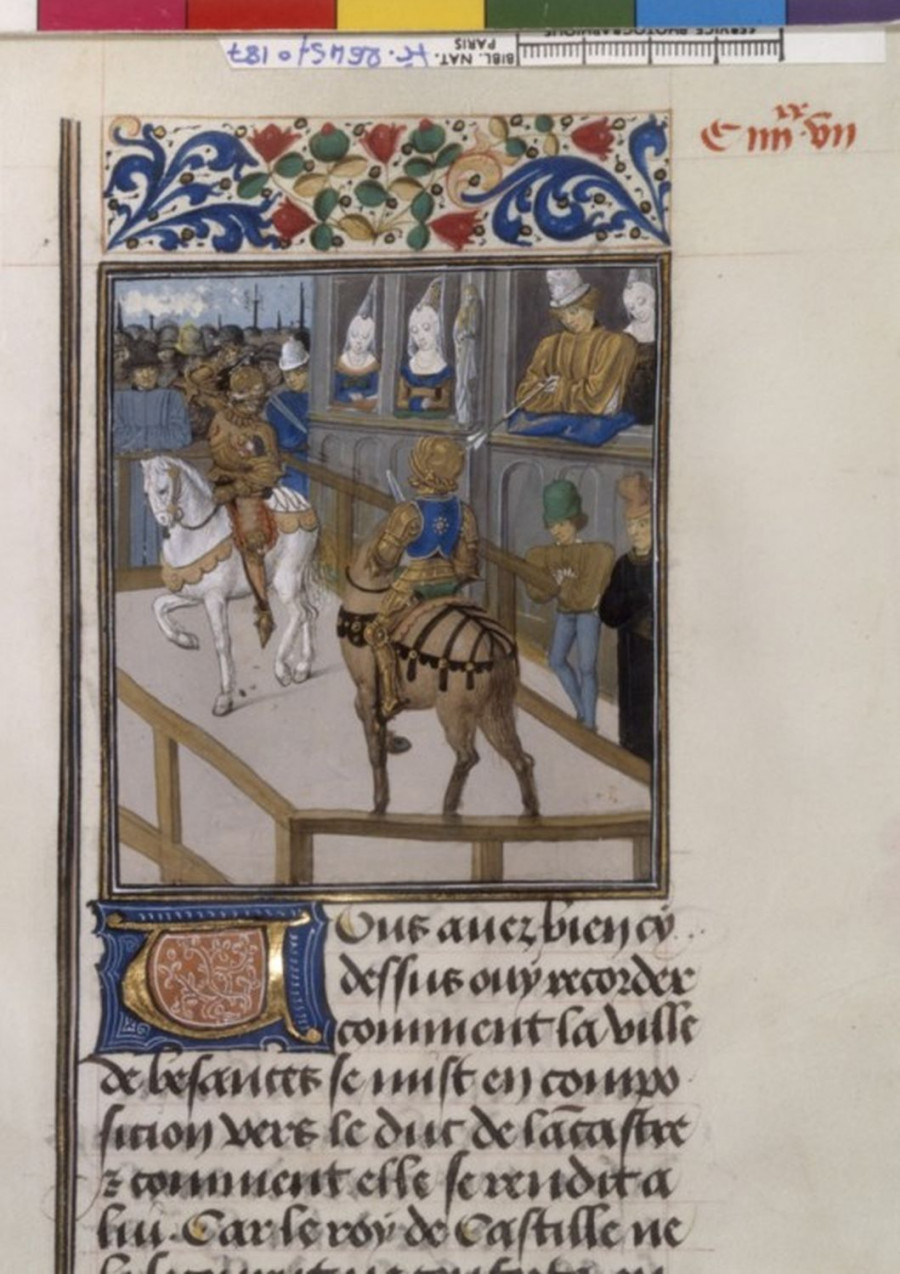 SERVICE PHOTOGRAPHIQUE
BIBL. NAT.
PARIS
fr. 2645 fo 187
C iiii xx vii
Vous avez bien cy
dessus ouy recorder
comment la ville
de besances se mist en compo
sicion vers le duc de lācastre
⁊ comment elle se rendit a
lui. Car le roy de Castille ne